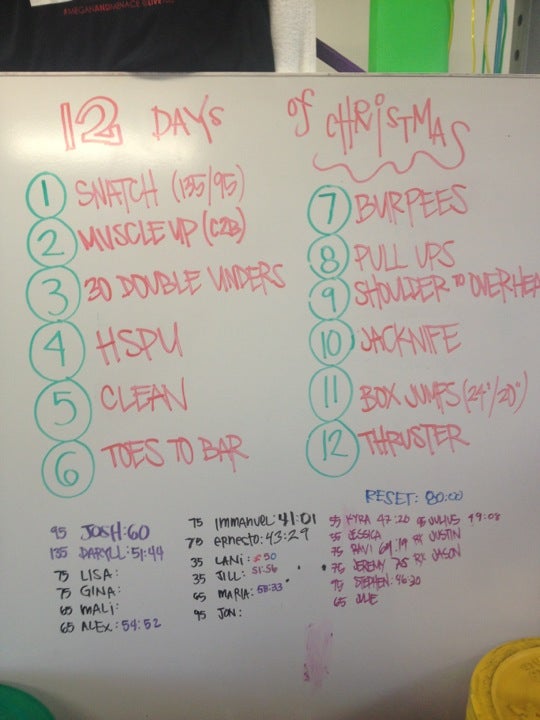 #MEGANANDMENACE @LIVE
12 DAYS of CHRISTMAS
1 SNATCH (135/95)
2 MUSCLE UP (C2B)
3 30 DOUBLE UNDERS
4 HSPU
5 CLEAN
6 TOES TO BAR
7 BURPEES
8 PULL UPS
9 SHOULDER TO OVERHEA
10 JACKNIFE
11 BOX JUMPS (24"/20")
12 THRUSTER
RESET: 80:00
95 JOSH: 60
135 DARYLL: 51:44
75 LISA:
75 GINA:
65 MALI:
65 ALEX: 54:52
75 IMMANUEL: 41:01
75 ERNECTO: 43:29
35 LANI: 50
35 JILL: 51:56
65 MARIA: 58:33
95 JON:
55 KYRA 47:20 95 JULIUS 49:08
55 JESSICA RX JUSTIN
75 RAVI 69:19 RX JASON
75 JEREMY 75
95 STEPHEN: 46:30
65 JULIE